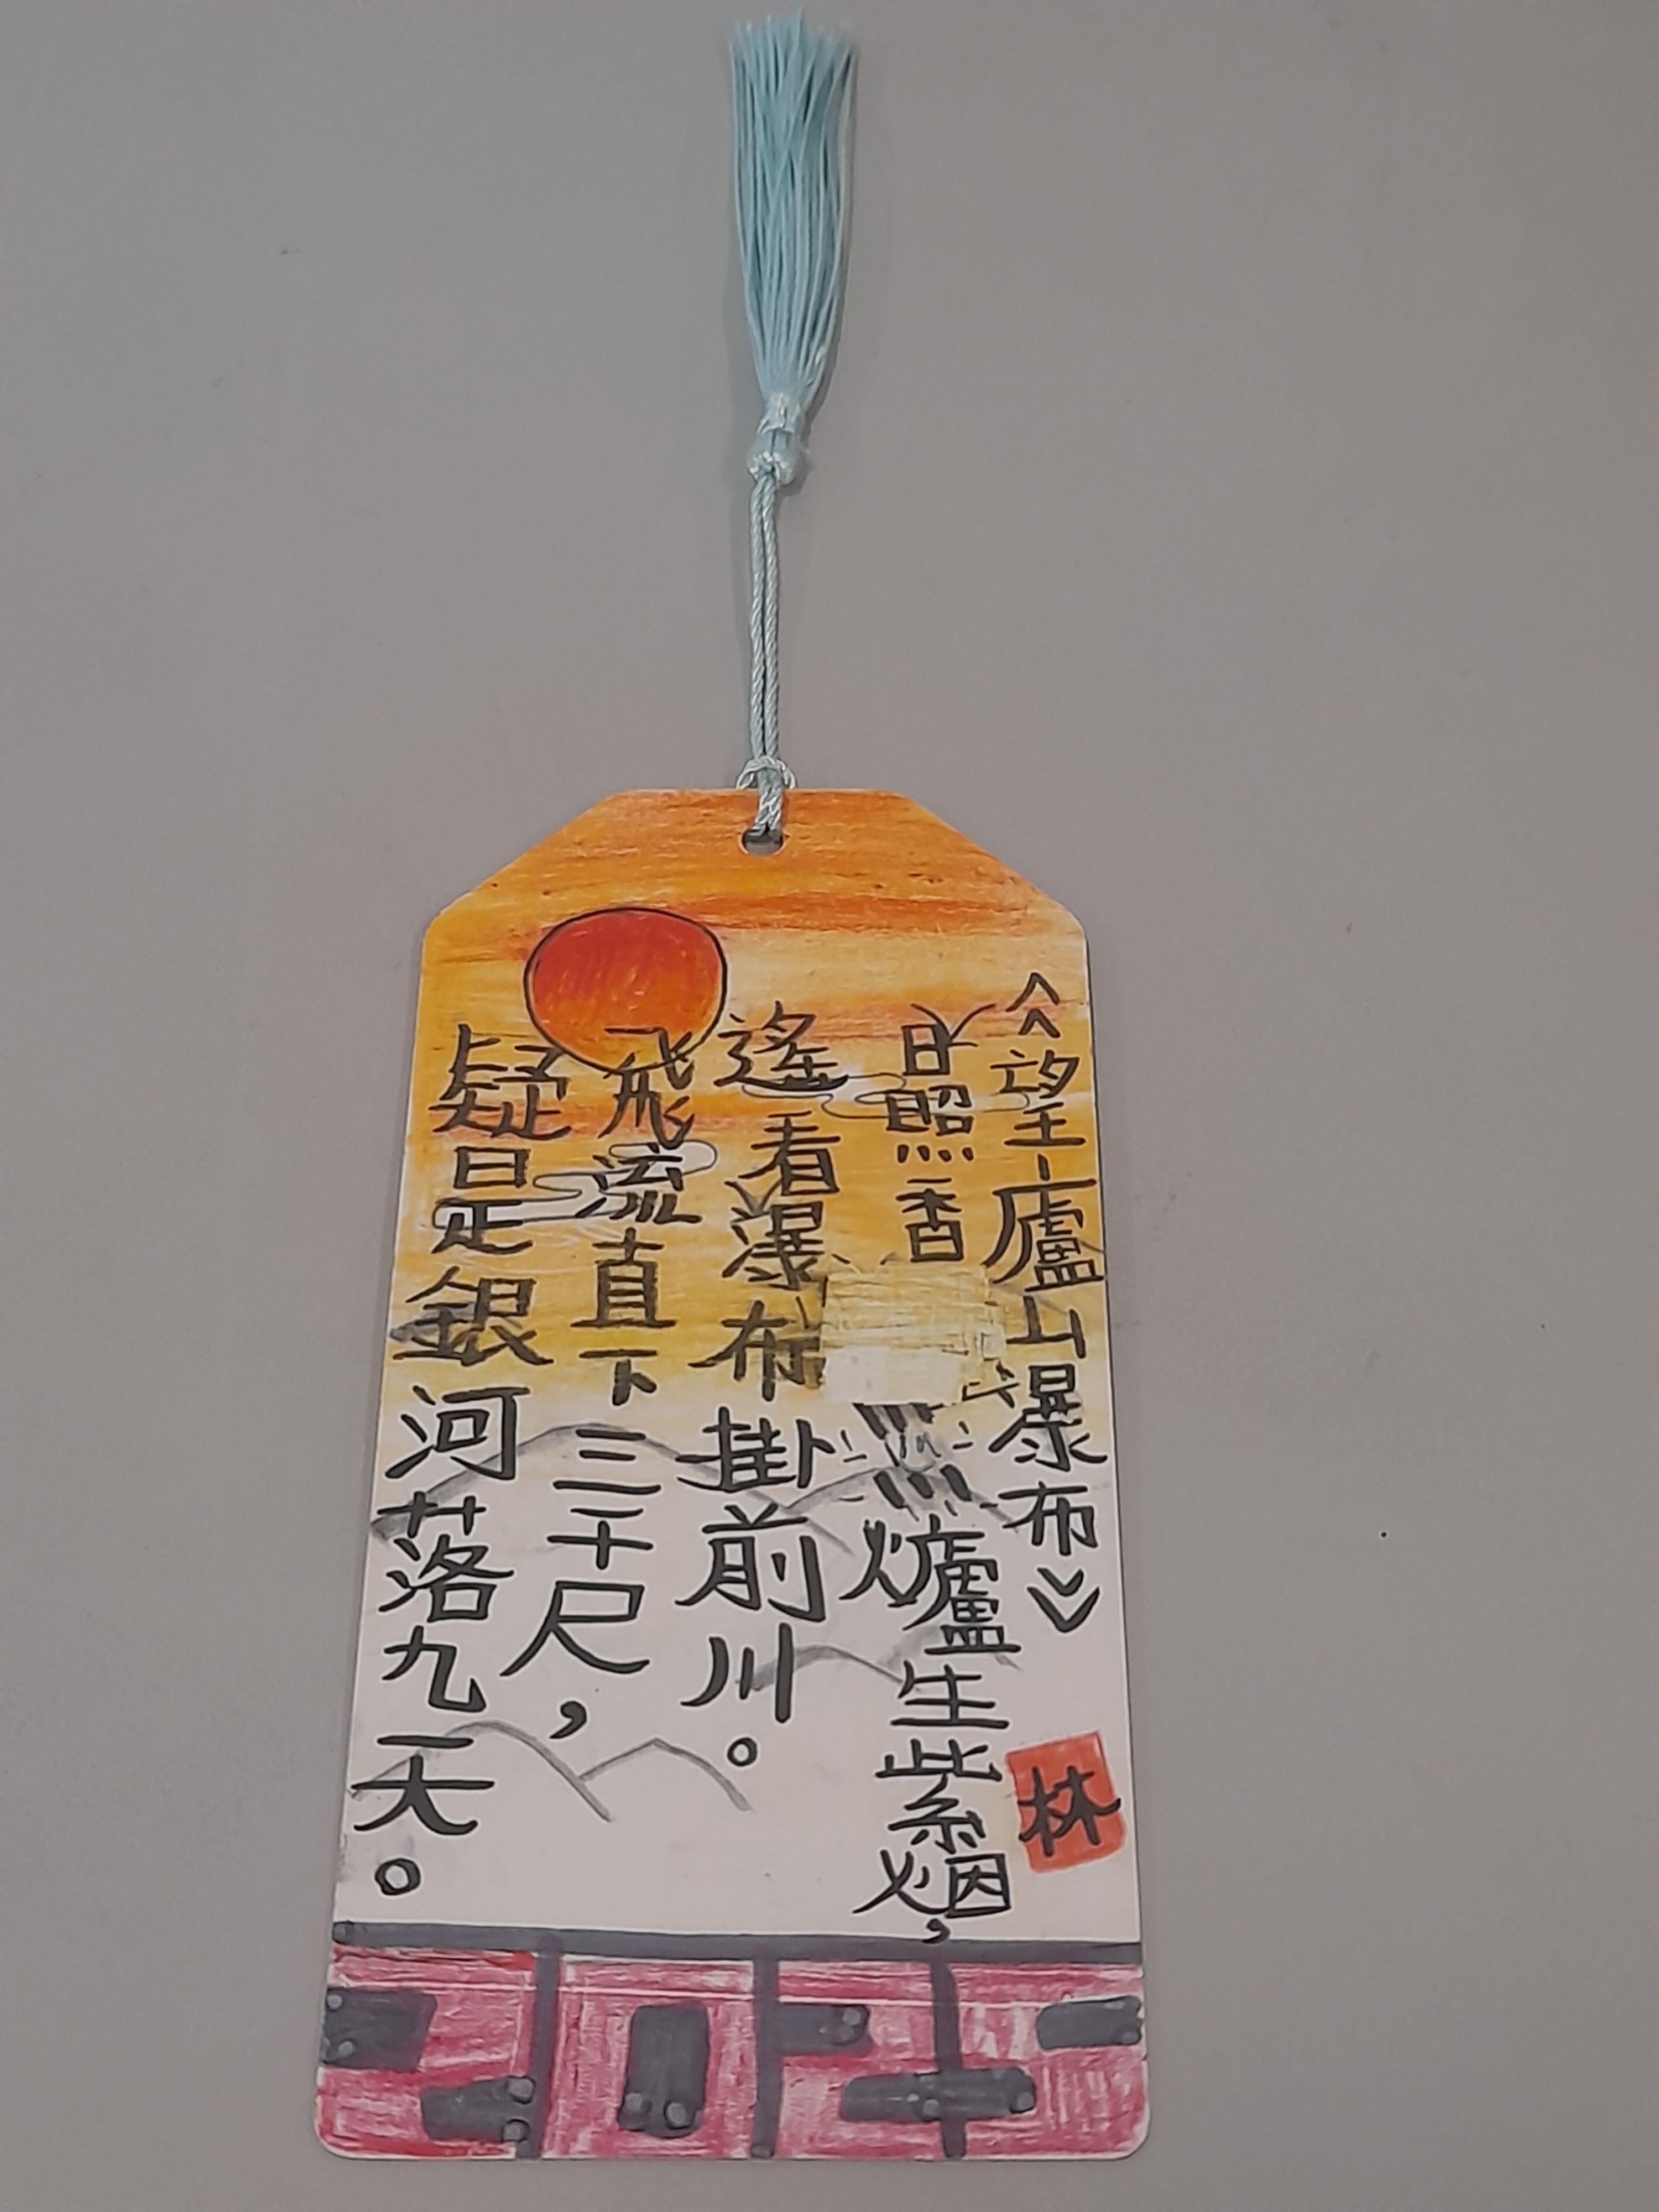 《望廬山瀑布》
林
日照香爐生紫烟，
遙看瀑布掛前川。
飛流直下三千尺，
疑是銀河落九天。